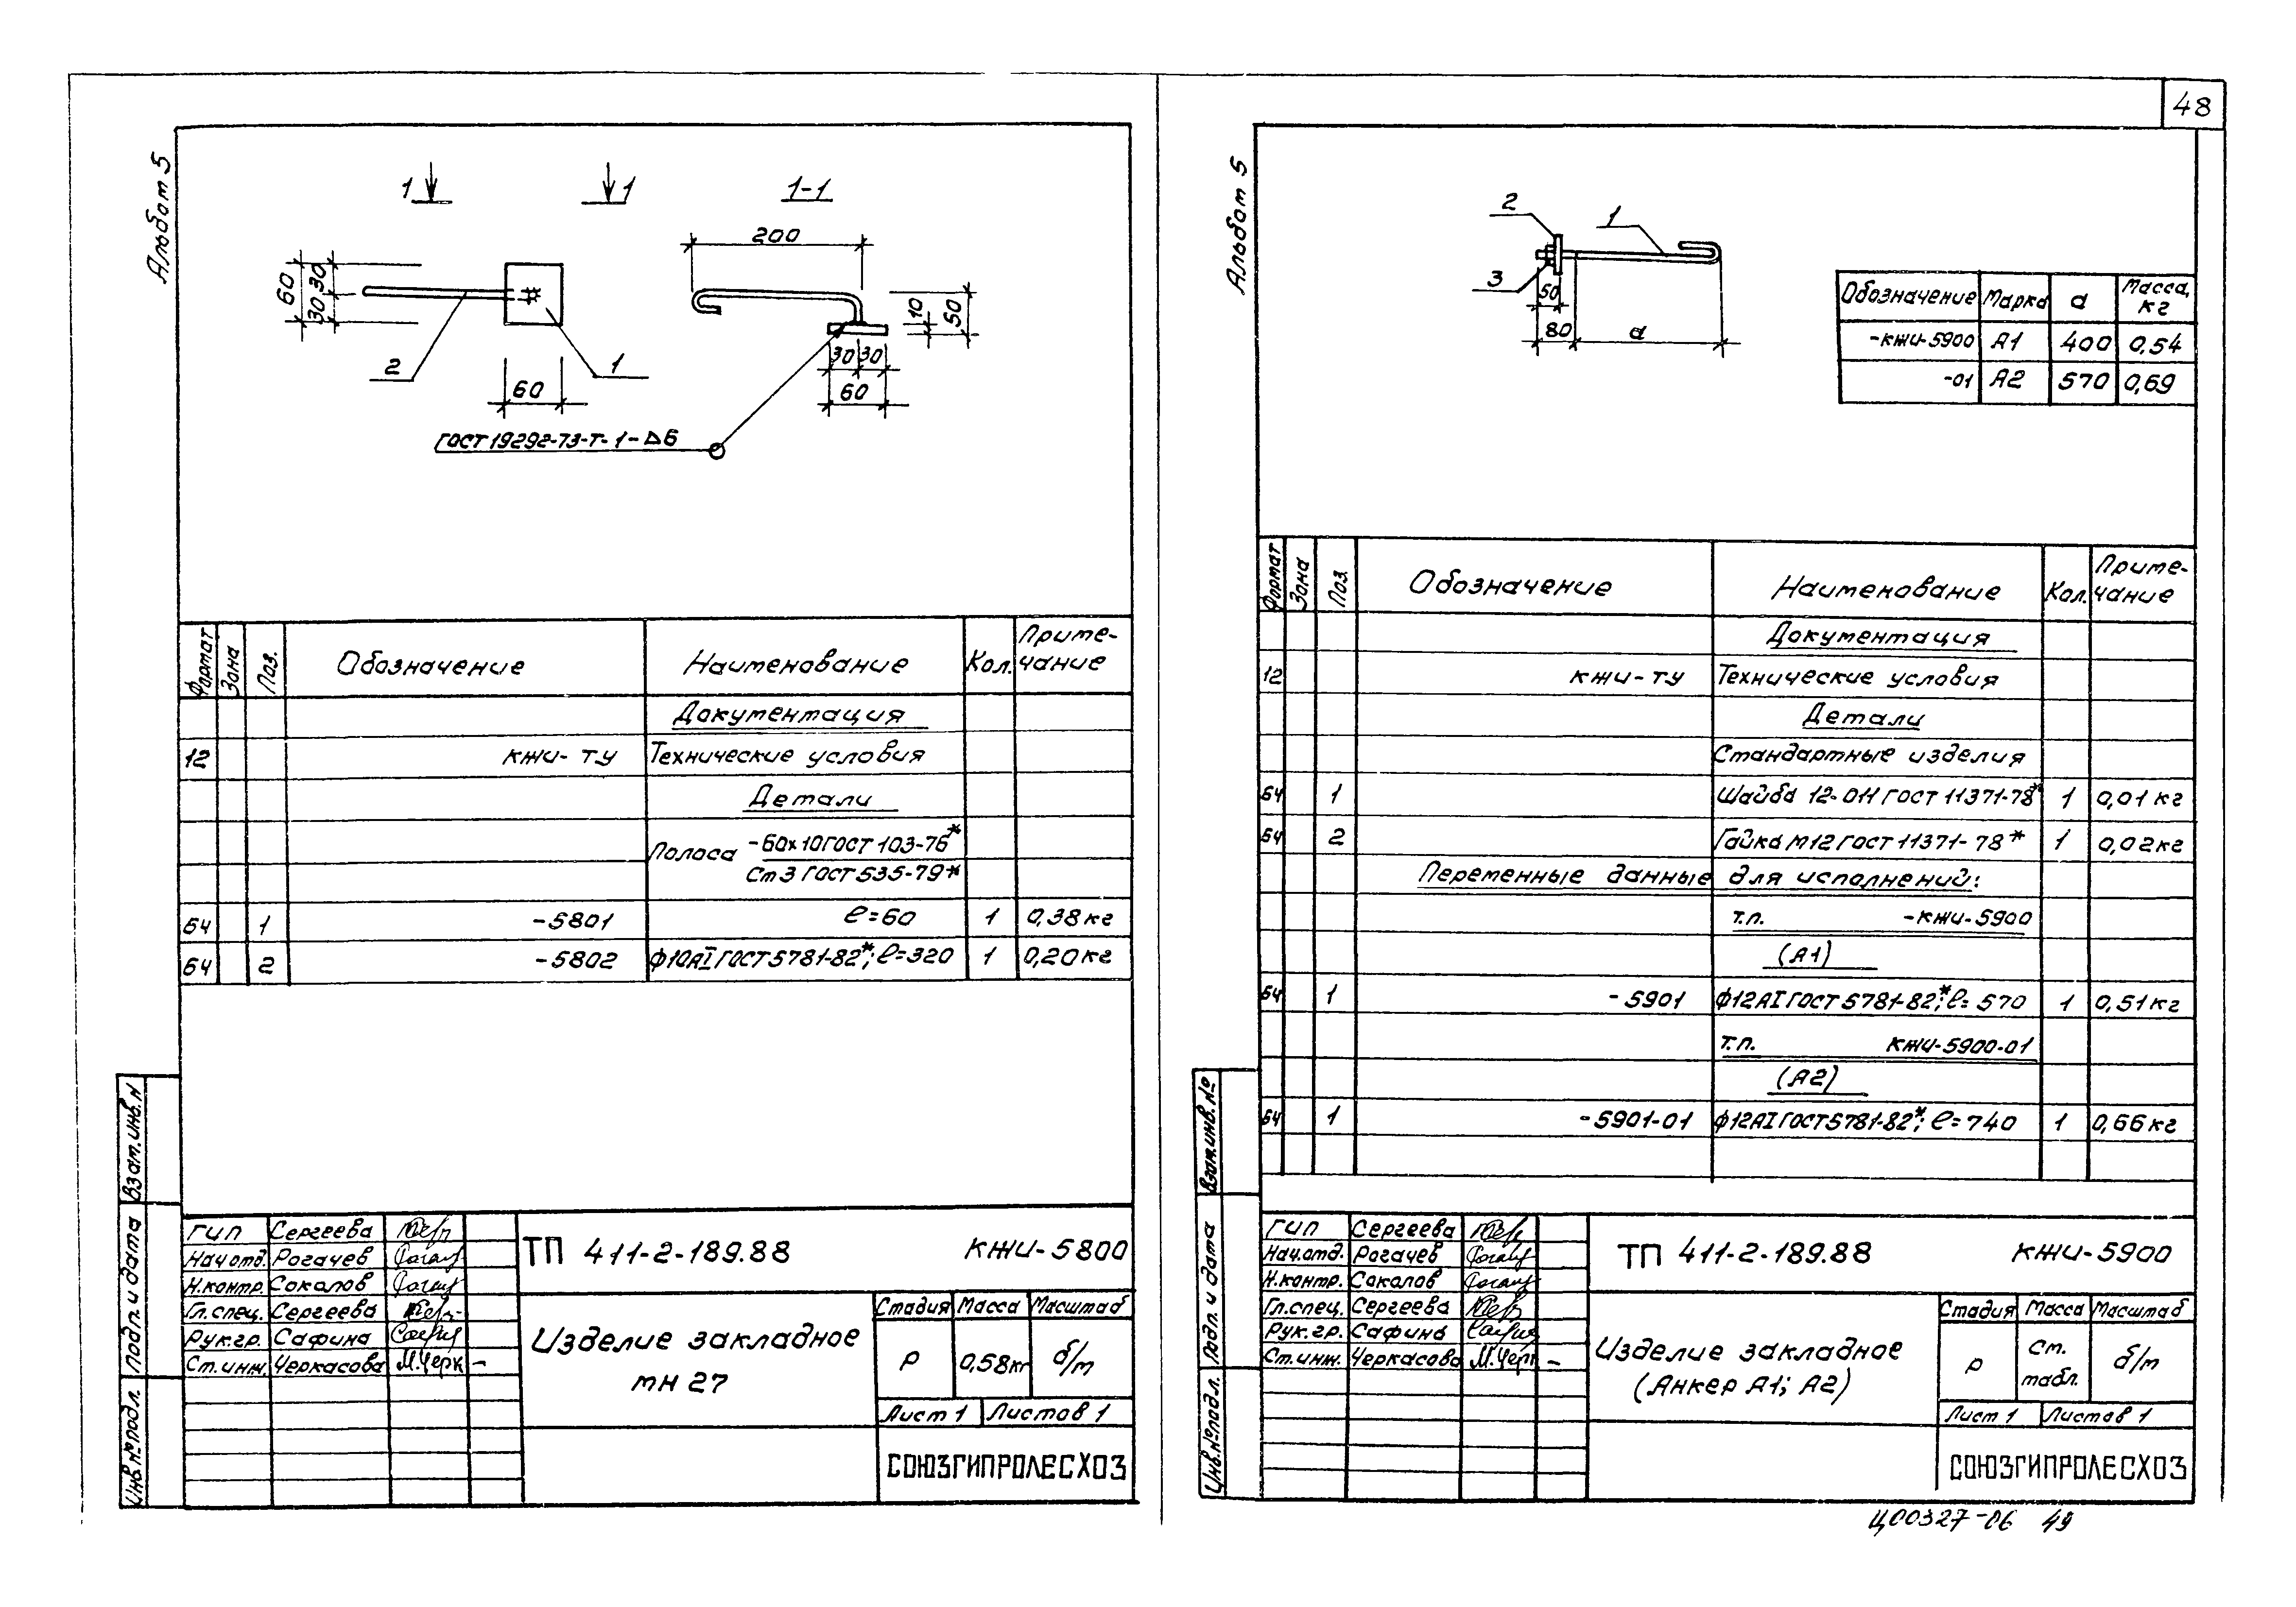 48
Альбом 5
1 1 1-1
200
60 30 30
2 1
60
10 50
30 30
60
ГОСТ 19292-73-Т-1-△6
Формат Зона Поз. Обозначение Наименование Кол. Приме-
чание
Документация
12 КЖИ-ТУ Технические условия
Детали
Полоса -60х10 ГОСТ 103-76*
Ст3 ГОСТ 535-79*
БЧ 1 -5801 ℓ=60 1 0,38 кг
БЧ 2 -5802 ф10АI ГОСТ 5781-82*; ℓ=320 1 0,20 кг
Взам.инв.N
Подп. и дата
Инв.№подл.
ГИП Сергеева
Нач.отд. Рогачев
Н.контр. Соколов
Гл.спец. Сергеева
Рук.гр. Сафина
Ст.инж. Черкасова М.Черк
ТП 411-2-189.88 КЖИ-5800
Изделие закладное
МН 27
Стадия Масса Масштаб
Р 0,58кг б/м
Лист 1 Листов 1
СОЮЗГИПРОЛЕСХОЗ
Альбом 5
2 1
3
50
80 а
Обозначение Марка а Масса,
кг
-КЖИ-5900 А1 400 0,54
-01 А2 570 0,69
Формат Зона Поз. Обозначение Наименование Кол. Приме-
чание
Документация
12 КЖИ-ТУ Технические условия
Детали
Стандартные изделия
БЧ 1 Шайба 12-011 ГОСТ 11371-78* 1 0,01 кг
БЧ 2 Гайка М12 ГОСТ 11371-78* 1 0,02кг
Переменные данные для исполнений:
Т.П. -КЖИ-5900
(А1)
БЧ 1 -5901 ф12АI ГОСТ 5781-82*; ℓ=570 1 0,51 кг
Т.П. КЖИ-5900-01
(А2)
БЧ 1 -5901-01 ф12АI ГОСТ 5781-82*; ℓ=740 1 0,66 кг
Взам.инв.№
Подп. и дата
Инв.№подл.
ГИП Сергеева
Нач.отд. Рогачев
Н.контр. Соколов
Гл.спец. Сергеева
Рук.гр. Сафина
Ст.инж. Черкасова М.Черк
ТП 411-2-189.88 КЖИ-5900
Изделие закладное
(Анкер А1; А2)
Стадия Масса Масштаб
Р См.
табл. б/м
Лист 1 Листов 1
СОЮЗГИПРОЛЕСХОЗ
Ц00327-06 49